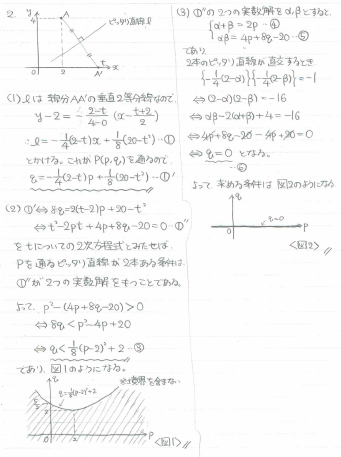 2.
y
4
A
ピッタリ直線 l
O
2
t
x
A'
(1) lは線分AA'の垂直2等分線なので、
y-2=-(2-t)/(4-0)(x-(t+2)/2)
∴l=-1/4(2-t)x+1/8(20-t²)…①
とかける。これがP(p,q)を通るので
q=-1/4(2-t)p+1/8(20-t²)…①'
(2) ①'⇔8q=2(t-2)p+20-t²
⇔t²-2pt+4p+8q-20=0…①''
をtについての2次方程式とみたせば、
Pを通るピッタリ直線が2本ある条件は、
①''が2つの実数解をもつことである。
よって、p²-(4p+8q-20)>0
⇔8q<p²-4p+20
⇔q<1/8(p-2)²+2…③
であり、図1のようになる。
※境界を含まない
q
q=1/8(p-2)²+2
5/2
2
O
2
p
<図1>
(3) ①''の2つの実数解をα,βとすると、
{α+β=2p…④
αβ=4p+8q-20…⑤
であり
2本のピッタリ直線が直交するとき
{-1/4(2-α)}{-1/4(2-β)}=-1
⇔(2-α)(2-β)=-16
⇔αβ-2(α+β)+4=-16
⇔4p+8q-20-4p+20=0
⇔q=0となる。
…⑥
よって求める条件は図2のようになる
q
q=0
O
p
<図2>